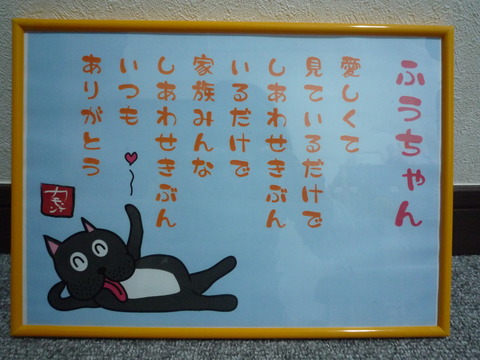 ふうちゃん
愛しくて
見ているだけで
しあわせきぶん
いるだけで
家族みんな
しあわせきぶん
いつも
ありがとう